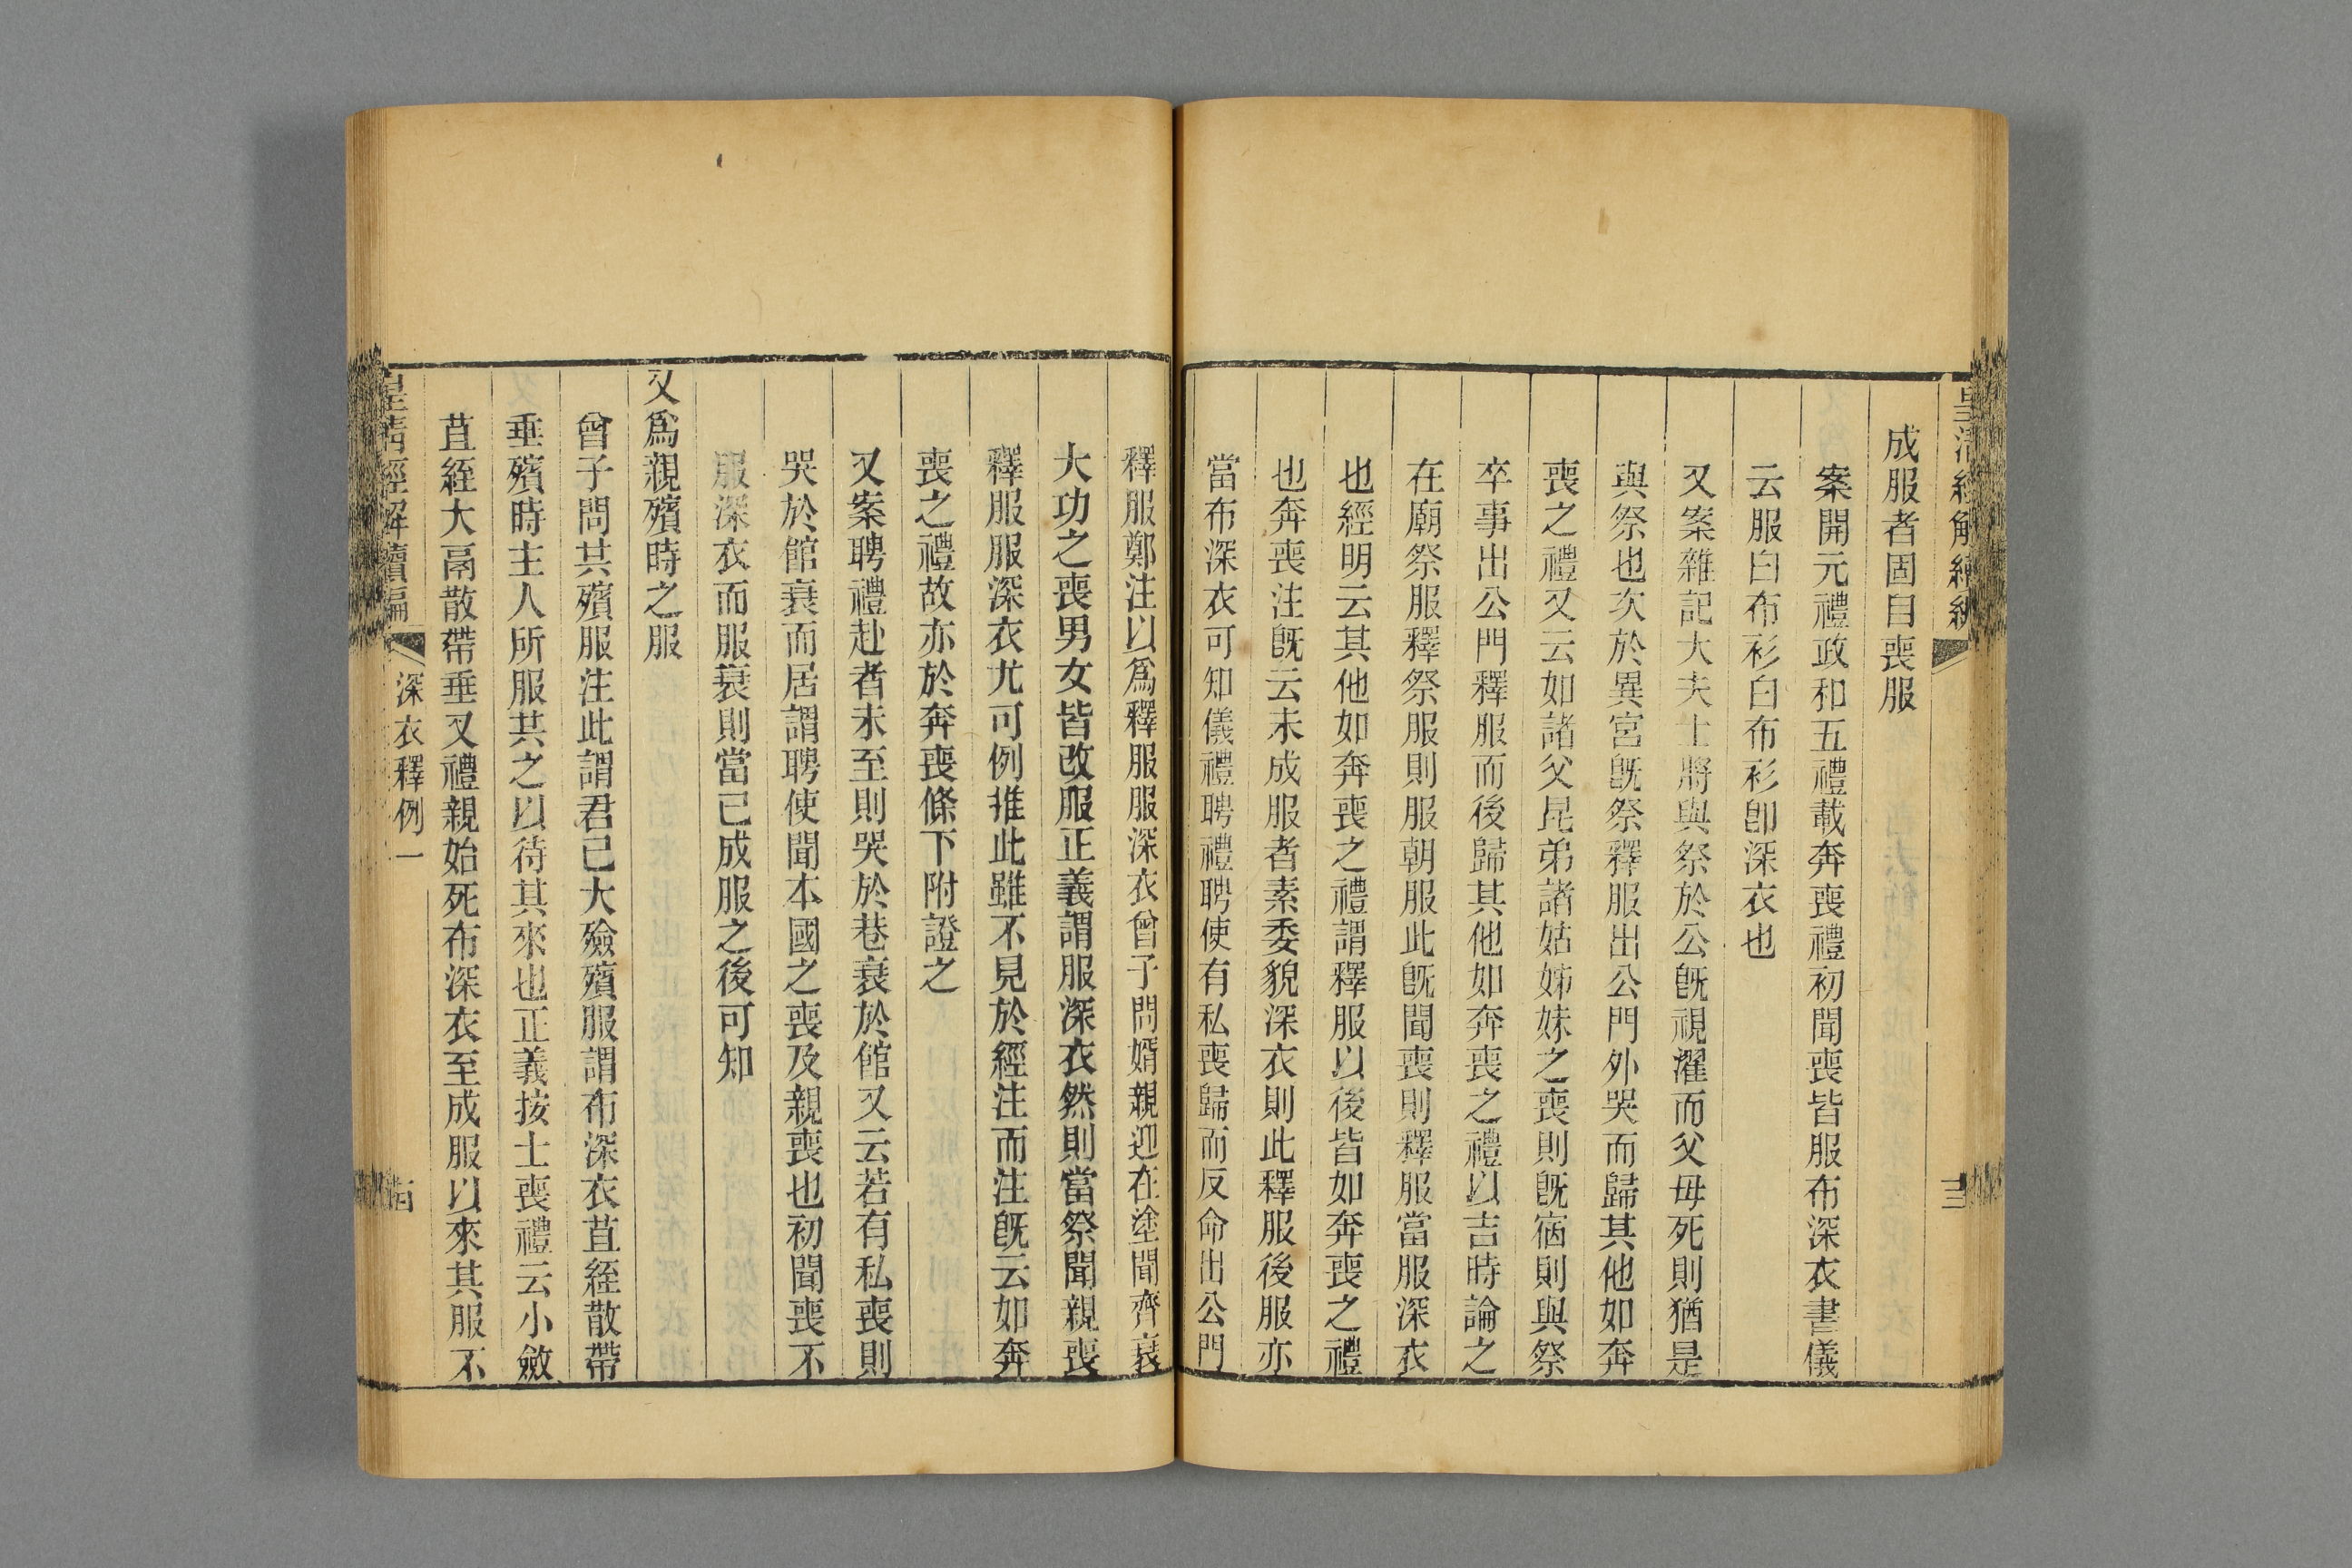 成服者固自喪服
案開元禮政和五禮載奔喪禮初聞喪皆服布深衣書儀
云服白布衫白布衫卽深衣也
又案雜記大夫士將與祭於公旣視濯而父母死則猶是
與祭也次於異宮旣祭釋服出公門外哭而歸其他如奔
喪之禮又云如諸父昆弟諸姑姊妹之喪則旣宿則與祭
卒事出公門釋服而後歸其他如奔喪之禮以吉時論之
在廟祭服釋祭服則服朝服此旣聞喪則釋服當服深衣
也經明云其他如奔喪之禮謂釋服以後皆如奔喪之禮
也奔喪注旣云未成服者素委貌深衣則此釋服後服亦
當布深衣可知儀禮聘禮聘使有私喪歸而反命出公門
釋服鄭注以爲釋服服深衣曾子問婿親迎在塗聞齊衰
大功之喪男女皆改服正義謂服深衣然則當祭聞親喪
釋服服深衣尤可例推此雖不見於經注而注旣云如奔
喪之禮故亦於奔喪條下附證之
又案聘禮赴者未至則哭於巷衰於館又云若有私喪則
哭於館衰而居謂聘使聞本國之喪及親喪也初聞喪不
服深衣而服衰則當已成服之後可知
又爲親殯時之服
曾子問共殯服注此謂君已大殮殯服謂布深衣苴絰散帶
垂殯時主人所服共之以待其來也正義按士喪禮云小斂
苴絰大鬲散帶垂又禮親始死布深衣至成服以來其服不
皇淸經解續編
深衣釋例一